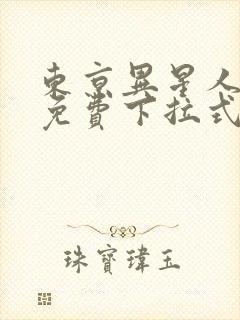 東京異星人
免費下拉式
珠寶瑋玉